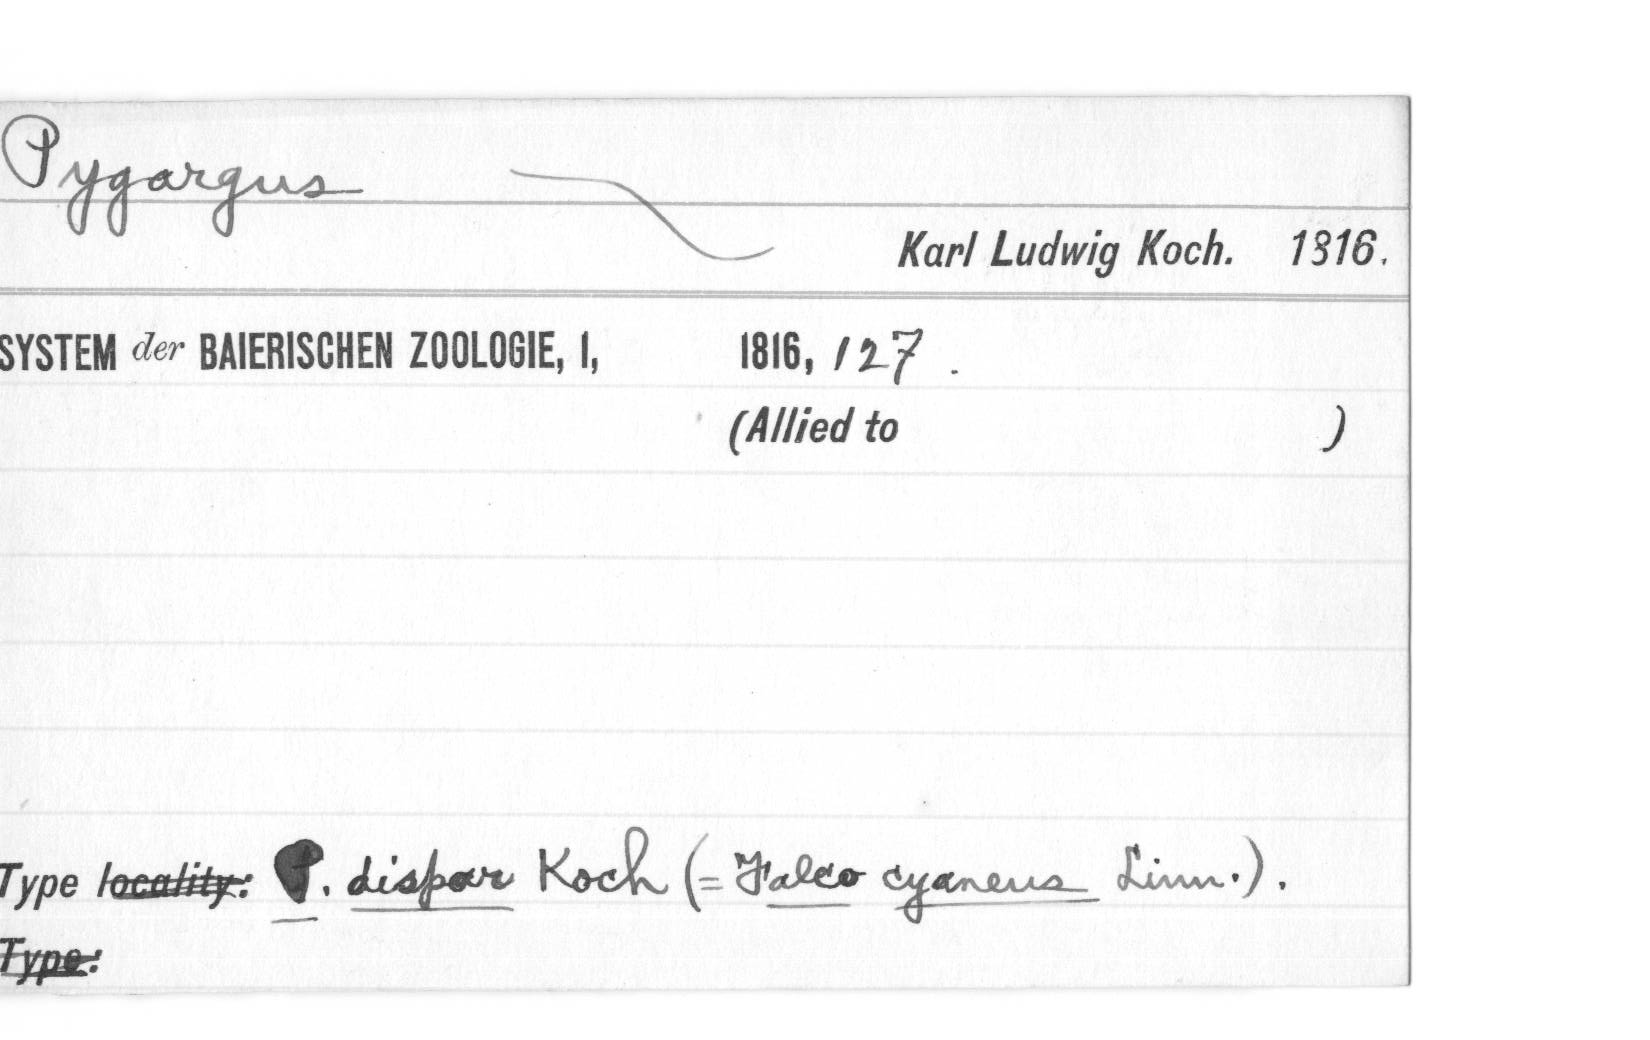 Pygargus
Karl Ludwig Koch. 1816.
SYSTEM der BAIERISCHEN ZOOLOGIE, I, 1816, 127.
(Allied to )
Type locality: P. dispar Koch (= Falco cyaneus Linn.).
Type: